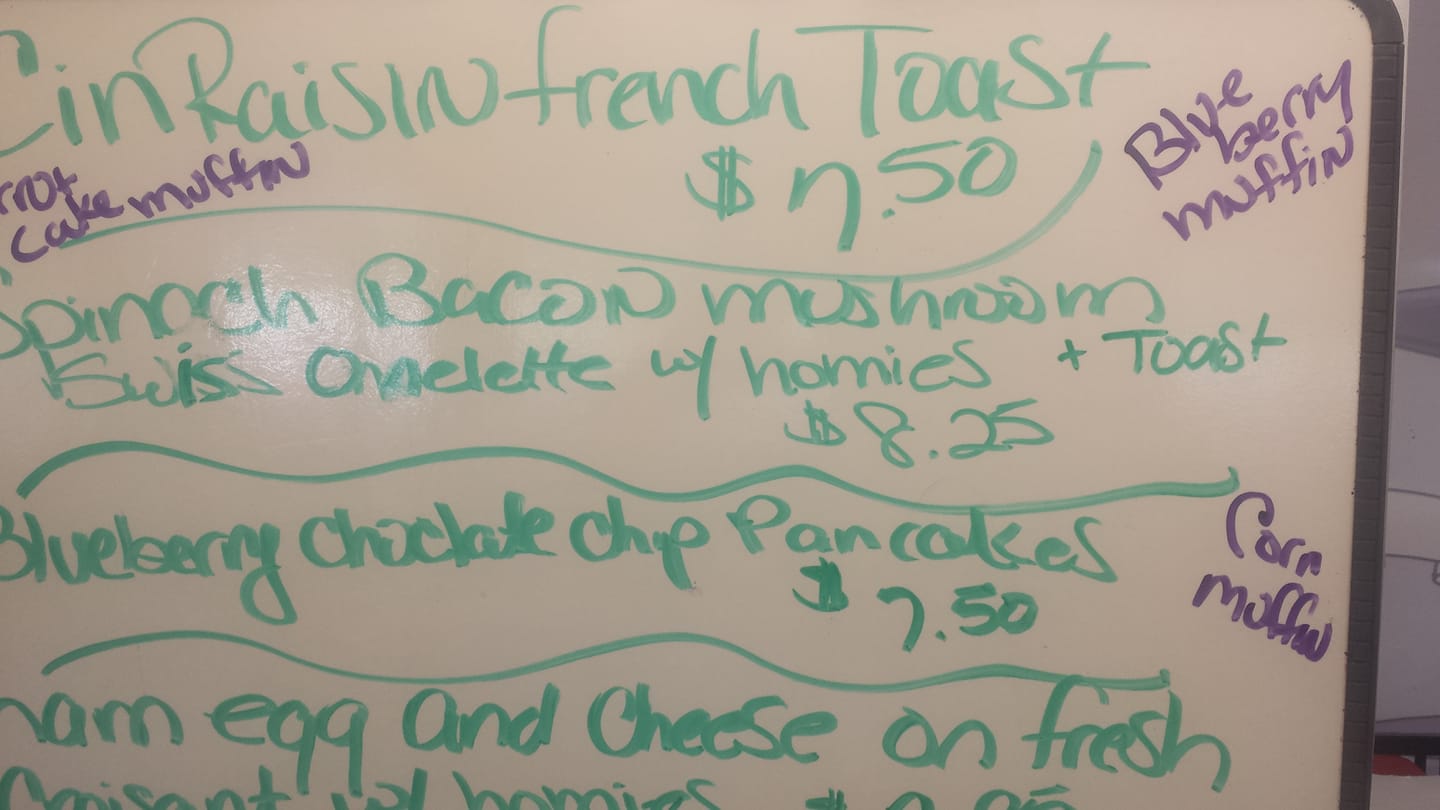 Cin Raisin french Toast
$7.50
rrot
cake muffin
Blue
berry
muffin
Spinach Bacon mushroom
Swiss Omelette w/ homies + Toast
$8.25
Blueberry choclate chip Pancakes
$7.50
Corn
muffin
ham egg and cheese on fresh
w/ homies $